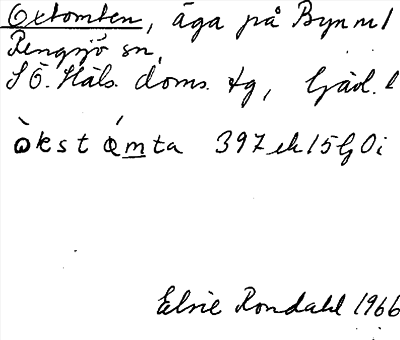 Oxtomten, äga på Byn nr 1
Rengsjö sn,
S Ö. Häls. doms. tg, Gävl. l
òkstómta 397 ek 15 G O i
Elsie Rondahl 1966